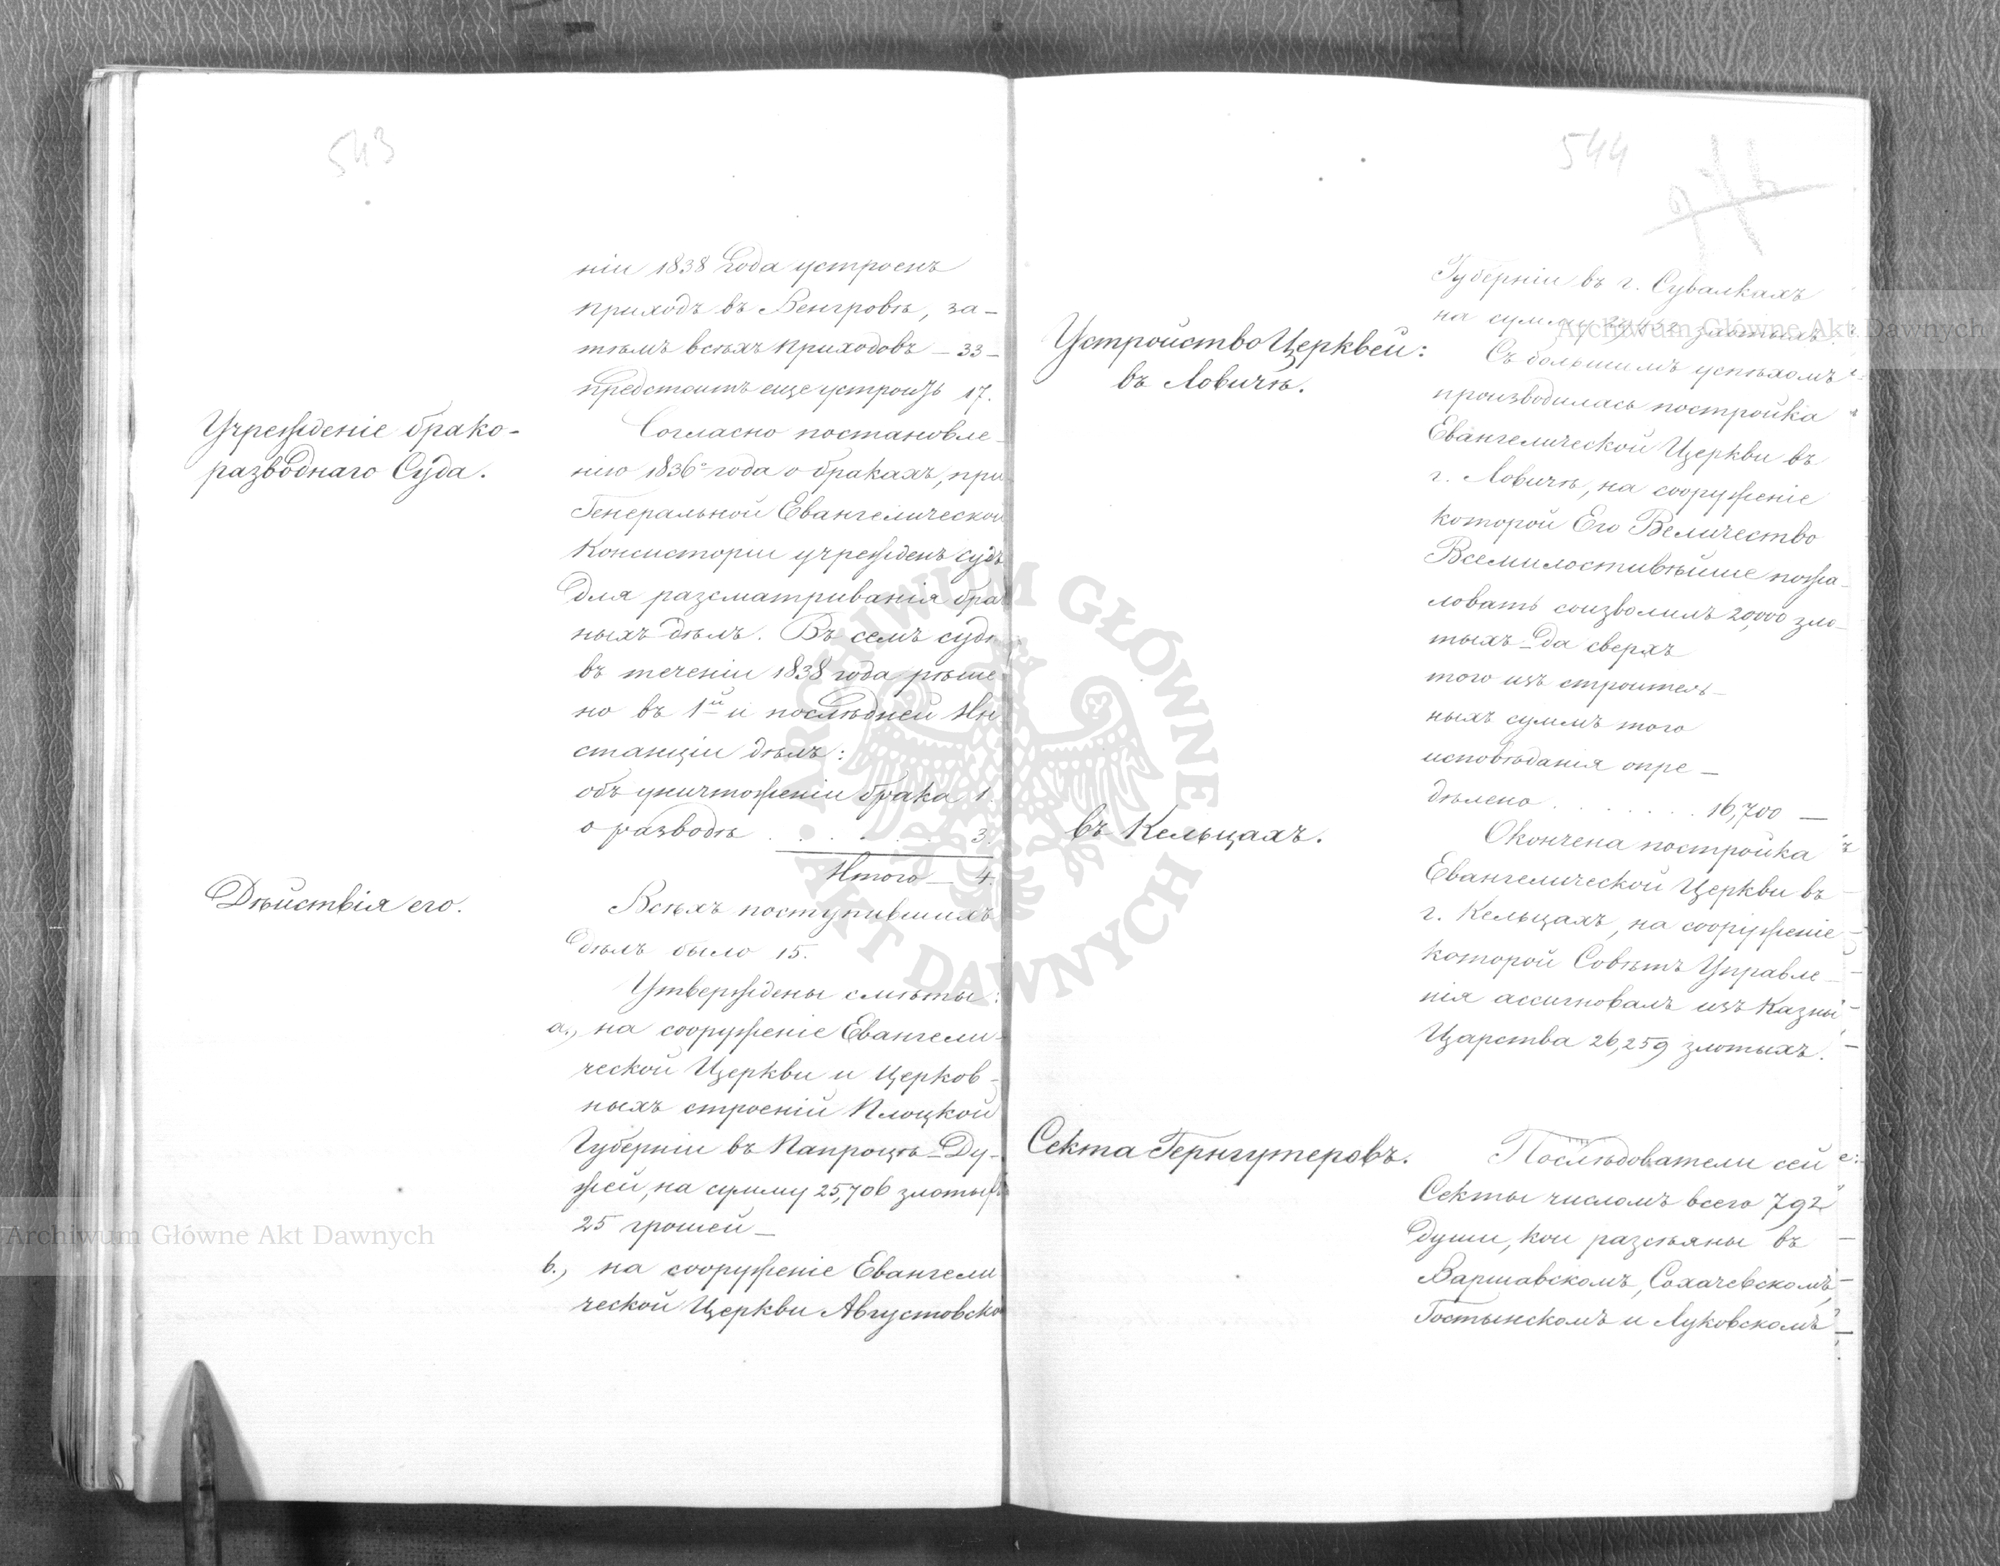 543
ніи 1838 года устроенъ
приходъ въ Венгровѣ, за-
тѣмъ всѣхъ приходовъ - 33 -
предстоитъ еще устроить 17.
Учрежденіе брако-
разводнаго Суда.
Согласно постановле-
нію 1836го года о бракахъ, при
Генеральной Евангелической
Консисторіи учрежденъ судъ
для разсматриванія брач
ныхъ дѣлъ. Въ семъ судѣ
въ теченіи 1838 года рѣше
но въ 1й и послѣдней Ин
станціи дѣлъ:
объ уничтоженіи брака 1.
о разводѣ . . . . . 3.
Итого - 4.
Дѣйствія его.
Всѣхъ поступившихъ
дѣлъ было 15.
Утверждены смѣты:
a., на сооруженіе Евангели-
ческой Церкви и Церков-
ныхъ строеній Плоцкой
Губерніи въ Папроцѣ-Ду-
жей, на сумму 25,706 злотыхъ
25 грошей -
b., на сооруженіе Евангели
ческой Церкви Августовской
544
Губерніи въ г. Сувалкахъ
на сумму злотыхъ.
Устройство Церквей:
въ Ловичѣ.
Съ большимъ успѣхомъ
производилась постройка
Евангелической Церкви въ
г. Ловичѣ, на сооруженіе
которой Его Величество
Всемилостивѣйше пожа-
ловать соизволилъ 20,000 зло-
тыхъ - да сверхъ
того изъ строитель-
ныхъ суммъ того
исповѣданія опре-
дѣлено . . . . . . . 16,700 -
въ Кельцахъ.
Окончена постройка
Евангелической Церкви въ
г. Кельцахъ, на сооруженіе
которой Совѣтъ Управле-
нія ассигновалъ изъ Казны
Царства 26,259 злотыхъ.
Секта Гернгутеровъ.
Послѣдователи сей
Секты числомъ всего 792
души, кои разсѣяны въ
Варшавскомъ, Сохачевскомъ,
Гостынскомъ и Луковскомъ
Archiwum Główne Akt Dawnych
Archiwum Główne Akt Dawnych
ARCHIWUM GŁÓWNE AKT DAWNYCH